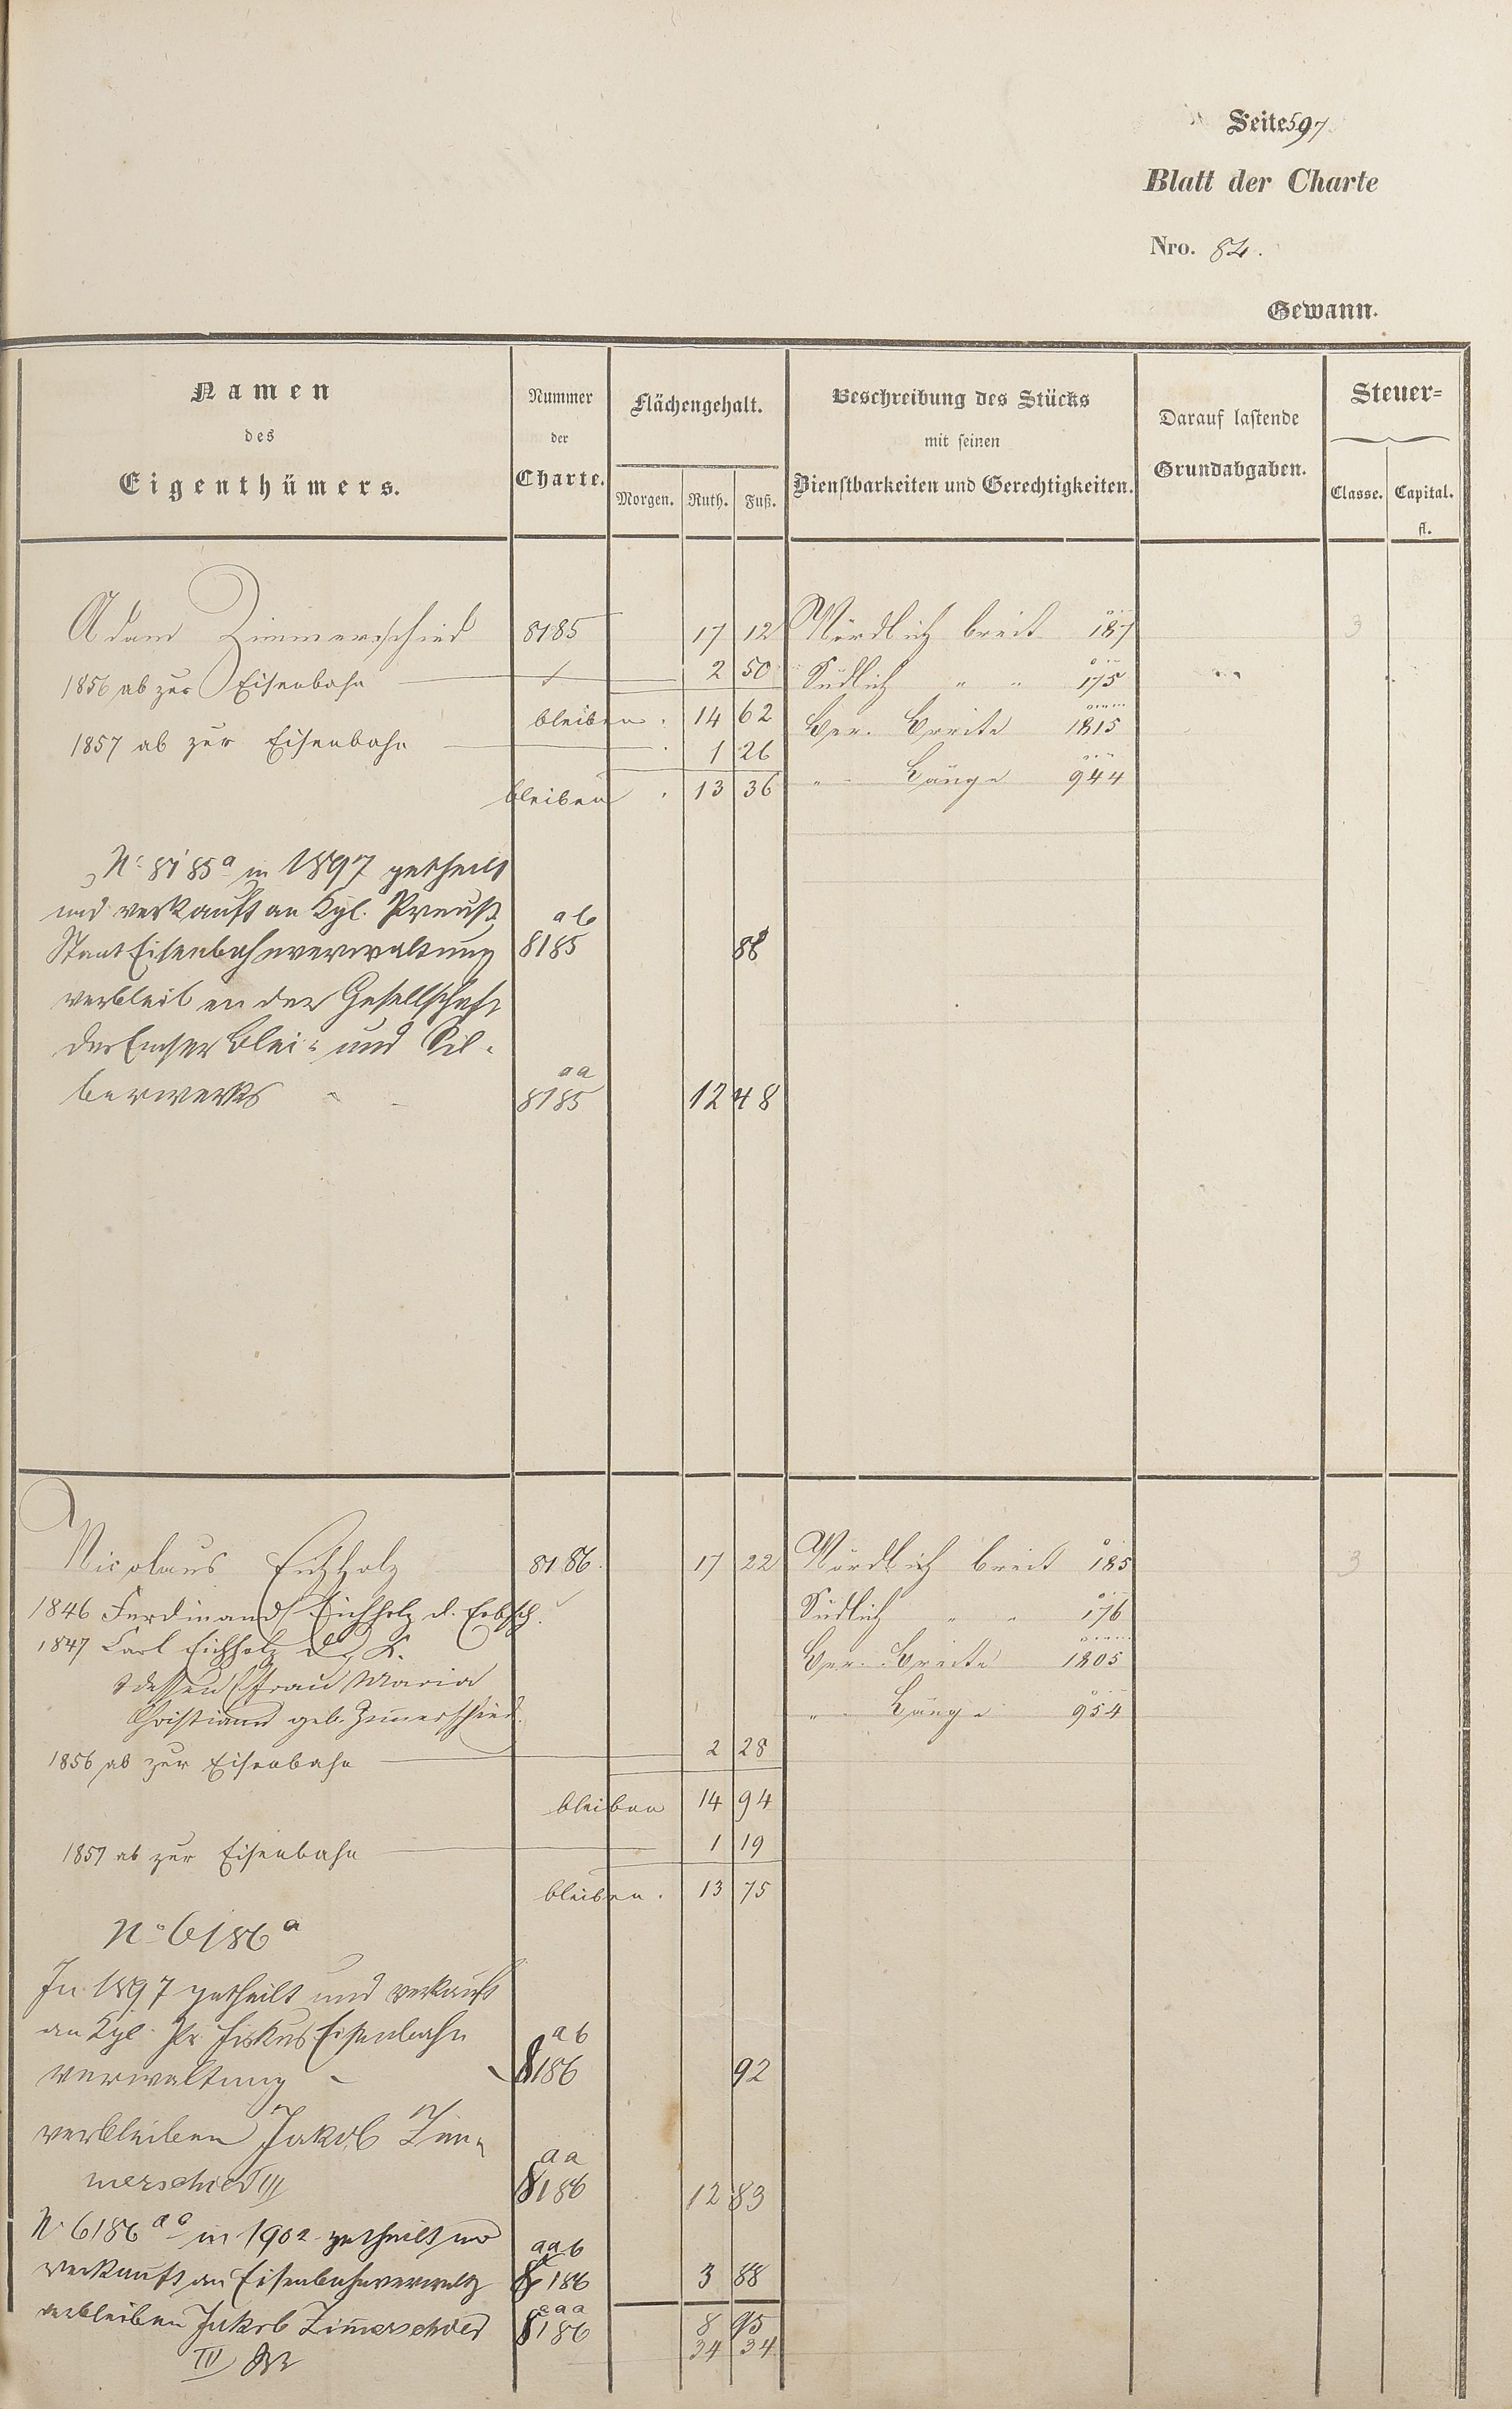 Seite 597
Blatt der Charte
Nro. 82.
Gewann.
Namen des Eigenthümers.
Nummer der Charte.
Flächengehalt.
Morgen. Ruth. Fuß.
Beschreibung des Stücks mit seinen Dienstbarkeiten und Gerechtigkeiten.
Darauf lastende Grundabgaben.
Steuer=
Classe. Capital. fl.
Adam Zimmerschied 8185 17 12 Nördlich breit 187 3
1856 ab zur Eisenbahn 2 50 Südlich " " 175
bleiben . 14 62 Ger. Breite 1815
1857 ab zur Eisenbahn 1 26
bleiben . 13 36 " Länge 944
No 8185a in 1897 getheilt
und verkauft an Kgl. Preuß.
Staat Eisenbahnverwaltung 8185 ab 88
verbleib en der Gesellschaft
des Emser Blei= und Sil=
berwerks 8185 aa 12 48
Nicolaus Eichholz 8186. 17 22 Nördlich breit 185 3
1846 Ferdinand Eichholz d. Erbsch. Südlich " " 176
1847 Carl Eichholz d. K. Ger. Breite 1805
& dessen Frau Maria
Christiana geb. Zimerschied. " Länge 954
1856 ab zur Eisenbahn 2 28
bleiben 14 94
1857 ab zur Eisenbahn 1 19
bleiben . 13 75
No 6186a
In 1897 getheilt und verkauft
an Kgl. Pr. Fiskus Eisenbahn
verwaltung 8186 ab 92
verbleiben Jakob Zim=
merschied III 8186 aa 12 83
No 6186aa in 1902 getheilt und
verkauft an Eisenbahnverwaltg 8186 aab 3 88
verbleiben Jakob Zimerschied 8186 aaa 8 95
III 34 34